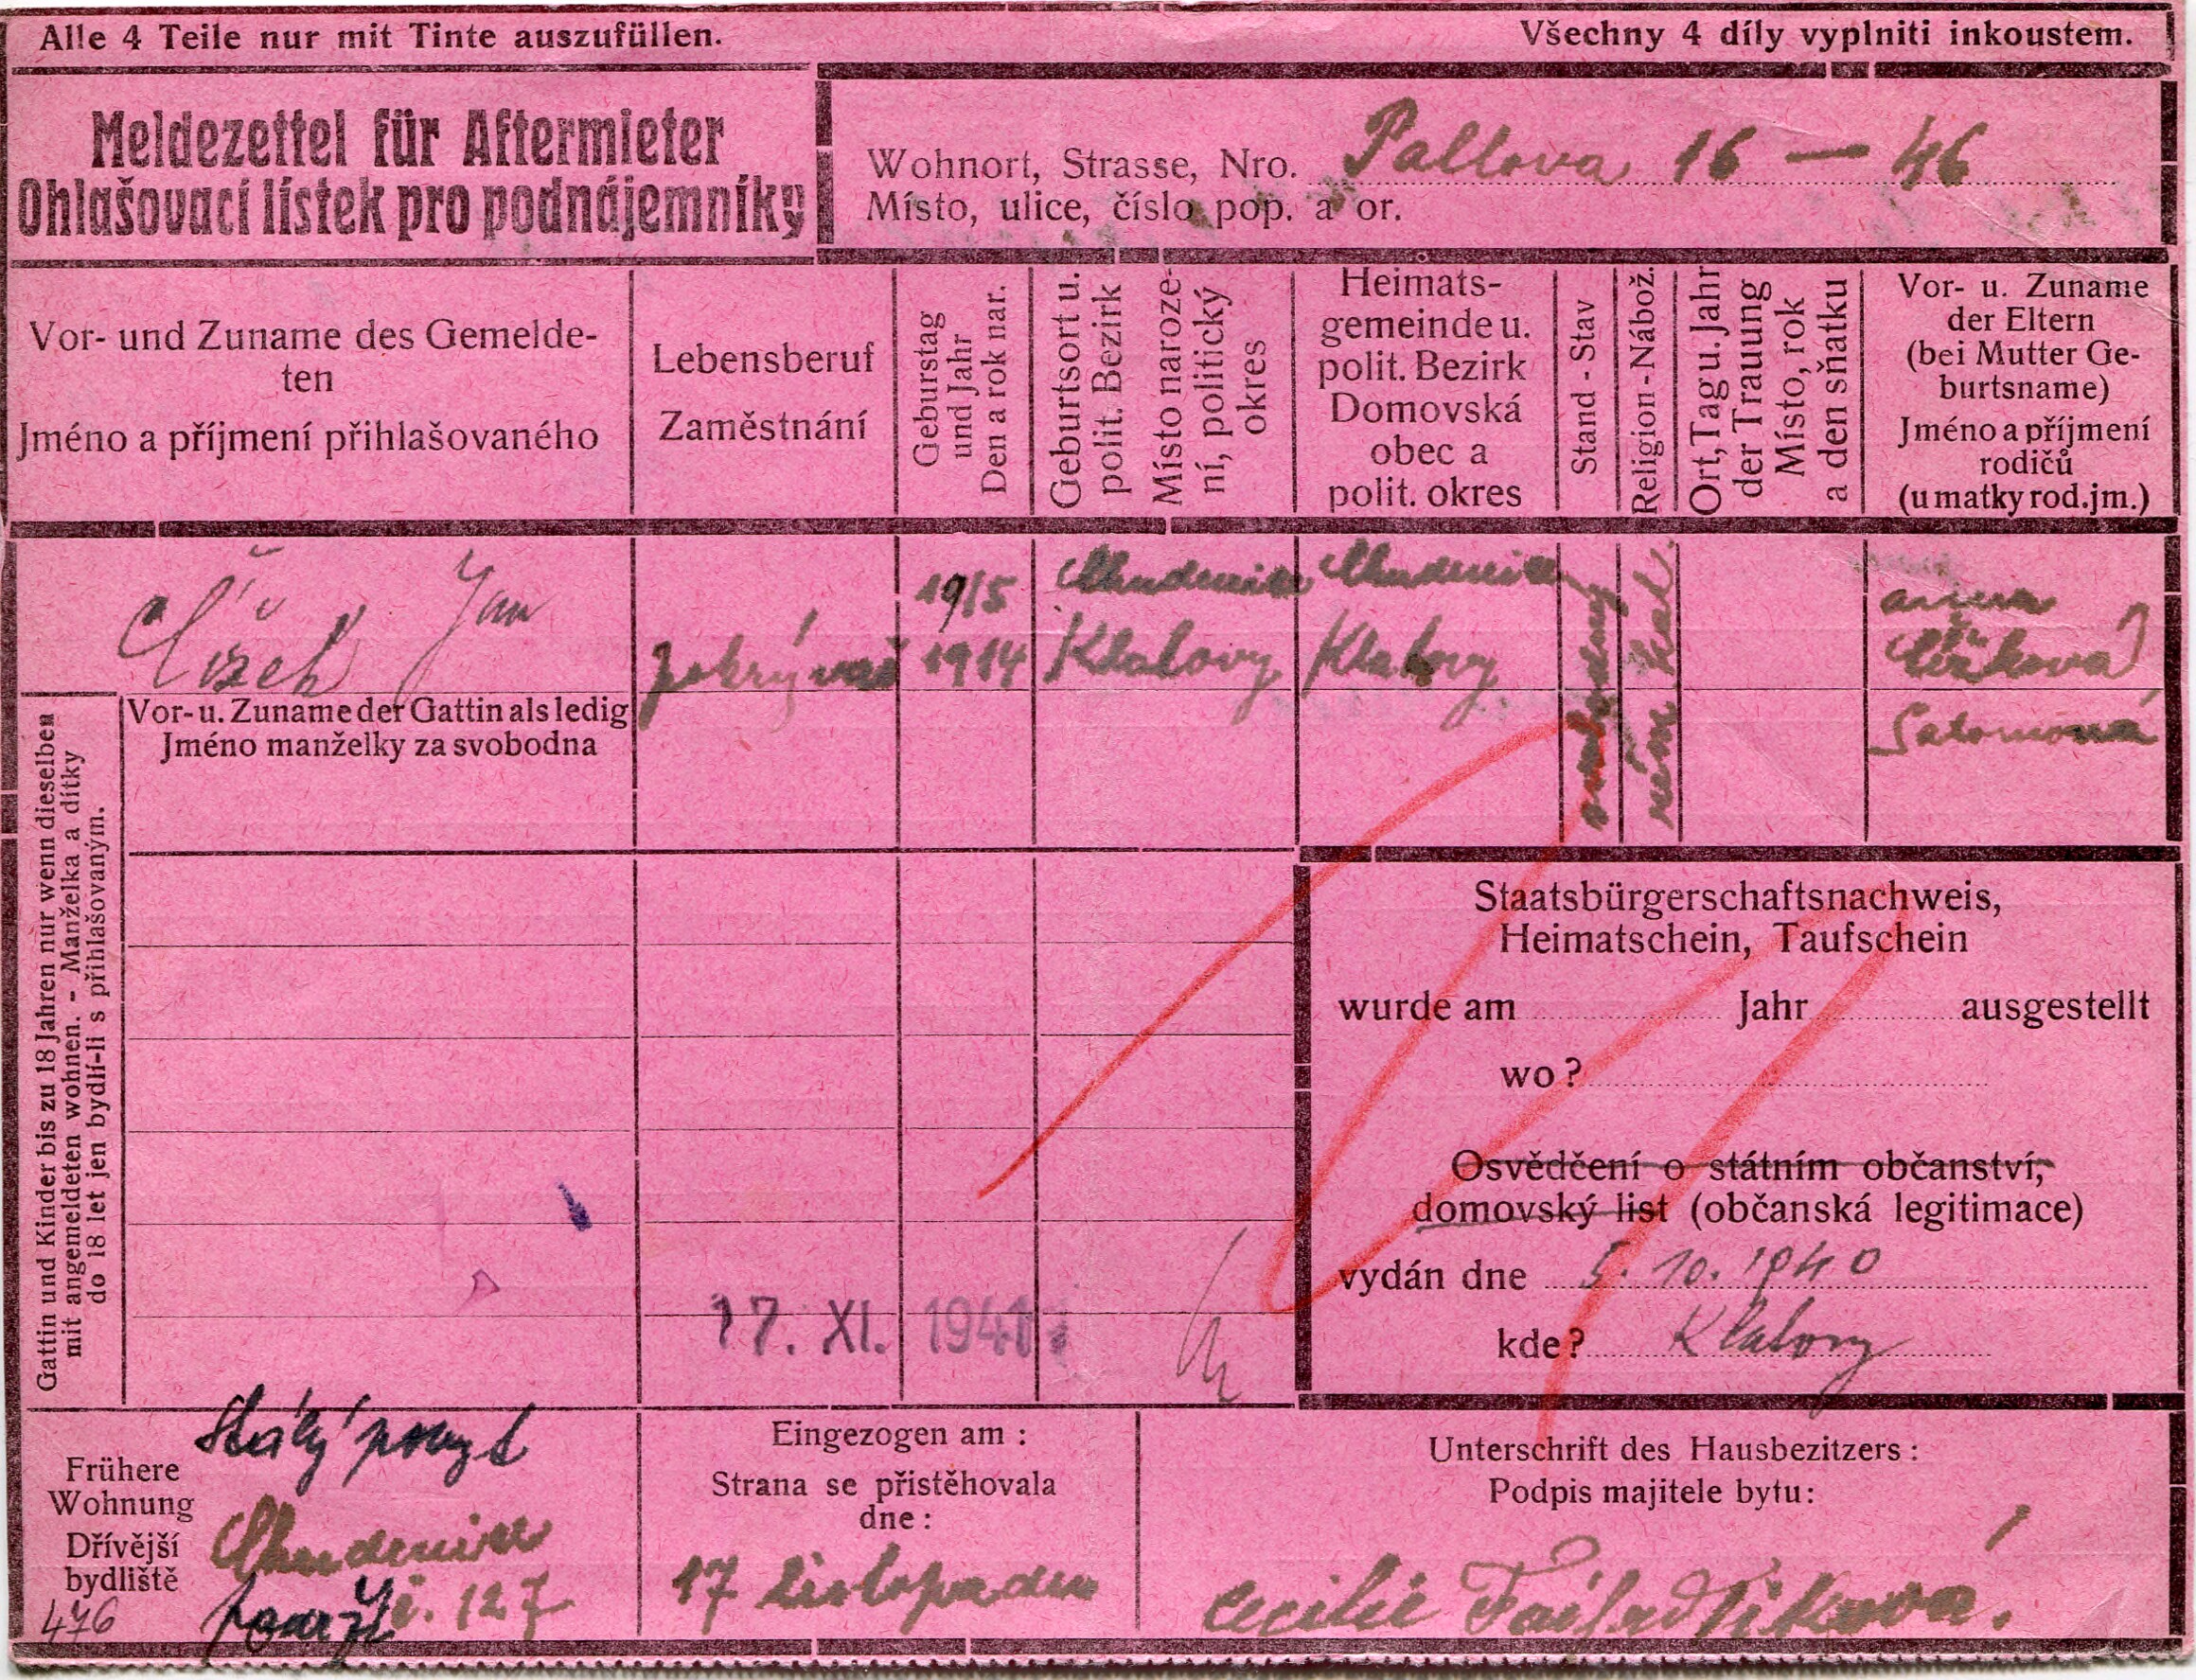 Alle 4 Teile nur mit Tinte auszufüllen.
Všechny 4 díly vyplniti inkoustem.
Meldezettel für Aftermieter
Ohlašovací lístek pro podnájemníky
Wohnort, Strasse, Nro.
Místo, ulice, číslo pop. a or.
Pallova 16 — 46
Vor- und Zuname des Gemelde-
ten
Jméno a příjmení přihlašovaného
Lebensberuf
Zaměstnání
Geburstag
und Jahr
Den a rok nar.
Geburtsort u.
polit. Bezirk
Místo naroze-
ní, politický
okres
Heimats-
gemeinde u.
polit. Bezirk
Domovská
obec a
polit. okres
Stand - Stav
Religion - Nábož.
Ort, Tag u. Jahr
der Trauung
Místo, rok
a den sňatku
Vor- u. Zuname
der Eltern
(bei Mutter Ge-
burtsname)
Jméno a příjmení
rodičů
(u matky rod. jm.)
Čížek Jan
pokrývač
19/5
1914
Chudenice
Klatovy
Chudenice
Klatovy
svobodný
řím kat.
Anna
Čížková
Salomona
Vor- u. Zuname der Gattin als ledig
Jméno manželky za svobodna
Gattin und Kinder bis zu 18 Jahren nur wenn dieselben
mit angemeldeten wohnen. - Manželka a dítky
do 18 let jen bydlí-li s přihlašovaným.
Staatsbürgerschaftsnachweis,
Heimatschein, Taufschein
wurde am Jahr ausgestellt
wo?
Osvědčení o státním občanství,
domovský list (občanská legitimace)
vydán dne 5. 10. 1940
kde? Klatovy
17. XI. 1941
Frühere
Wohnung
Dřívější
bydliště
Stálý pobyt
Chudenice
č. 127
476
Eingezogen am:
Strana se přistěhovala
dne:
17 Listopadu
Unterschrift des Hausbezitzers:
Podpis majitele bytu:
Cecilie